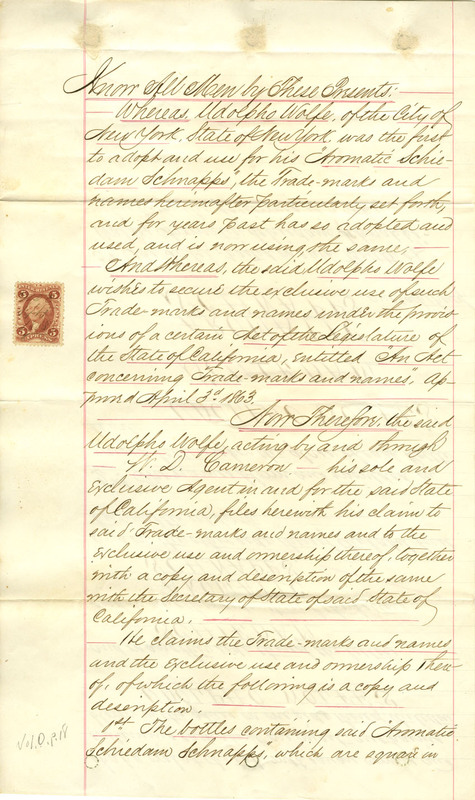 Know All Men by These Presents:
Whereas, Udolpho Wolfe, of the City of
New York, State of New York, was the first
to adopt and use for his "Aromatic Schie-
dam Schnapps", the Trade-marks and
names hereinafter particularly set forth,
and for years past has so adopted and
used, and is now using the same,
And Whereas, the said Udolpho Wolfe
wishes to secure the exclusive use of such
Trade-marks and names under the provis-
ions of a certain Act of the Legislature of
the State of California, entitled "An Act
concerning Trade-marks and names", Ap-
proved April 3d 1863.
Now Therefore, the said
Udolpho Wolfe, acting by and through
W. D. Cameron, his sole and
Exclusive Agent in and for the said State
of California, files herewith his claim to
said Trade-marks and names and to the
exclusive use and ownership thereof, together
with a copy and description of the same
with the Secretary of State of said State of
California.
He claims the Trade-marks and names
and the exclusive use and ownership there-
of, of which the following is a copy and
description.
1st The bottles containing said "Aromatic
Schiedam Schnapps", which are square in
5 5
Vol. D. p. 18